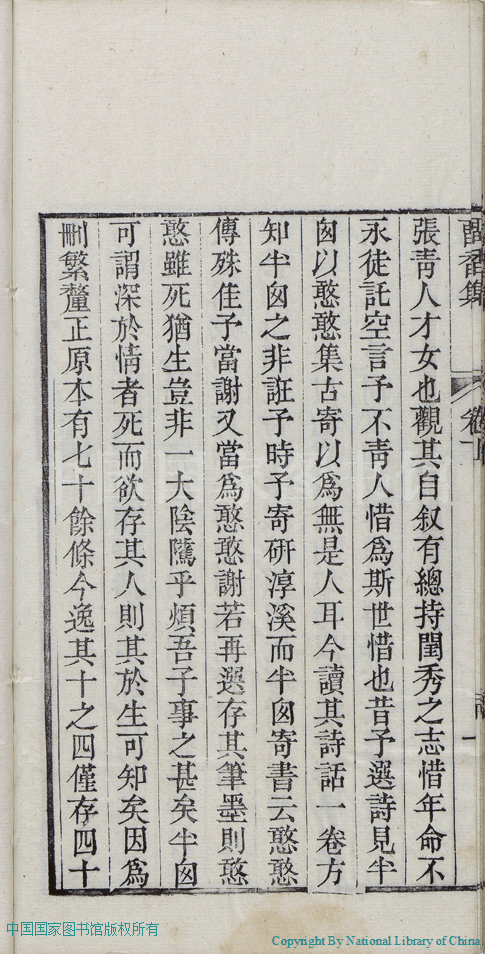 張靑人才女也觀其自叙有總持閨秀之志惜年命不
永徒託空言予不靑人惜爲斯世惜也昔予選詩見半
㐫以憨憨集古寄以爲無是人耳今讀其詩話一卷方
知半㐫之非誑予時予寄硏淳溪而半㐫寄書云憨憨
傳殊佳子當謝又當爲憨憨謝若再選存其筆墨則憨
憨雖死猶生豈非一大陰隲乎煩吾子事之甚矣半㐫
可謂深於情者死而欲存其人則其於生可知矣因爲
刪繁釐正原本有七十餘條今逸其十之四僅存四十
中国国家图书馆版权所有
Copyright By National Library of China